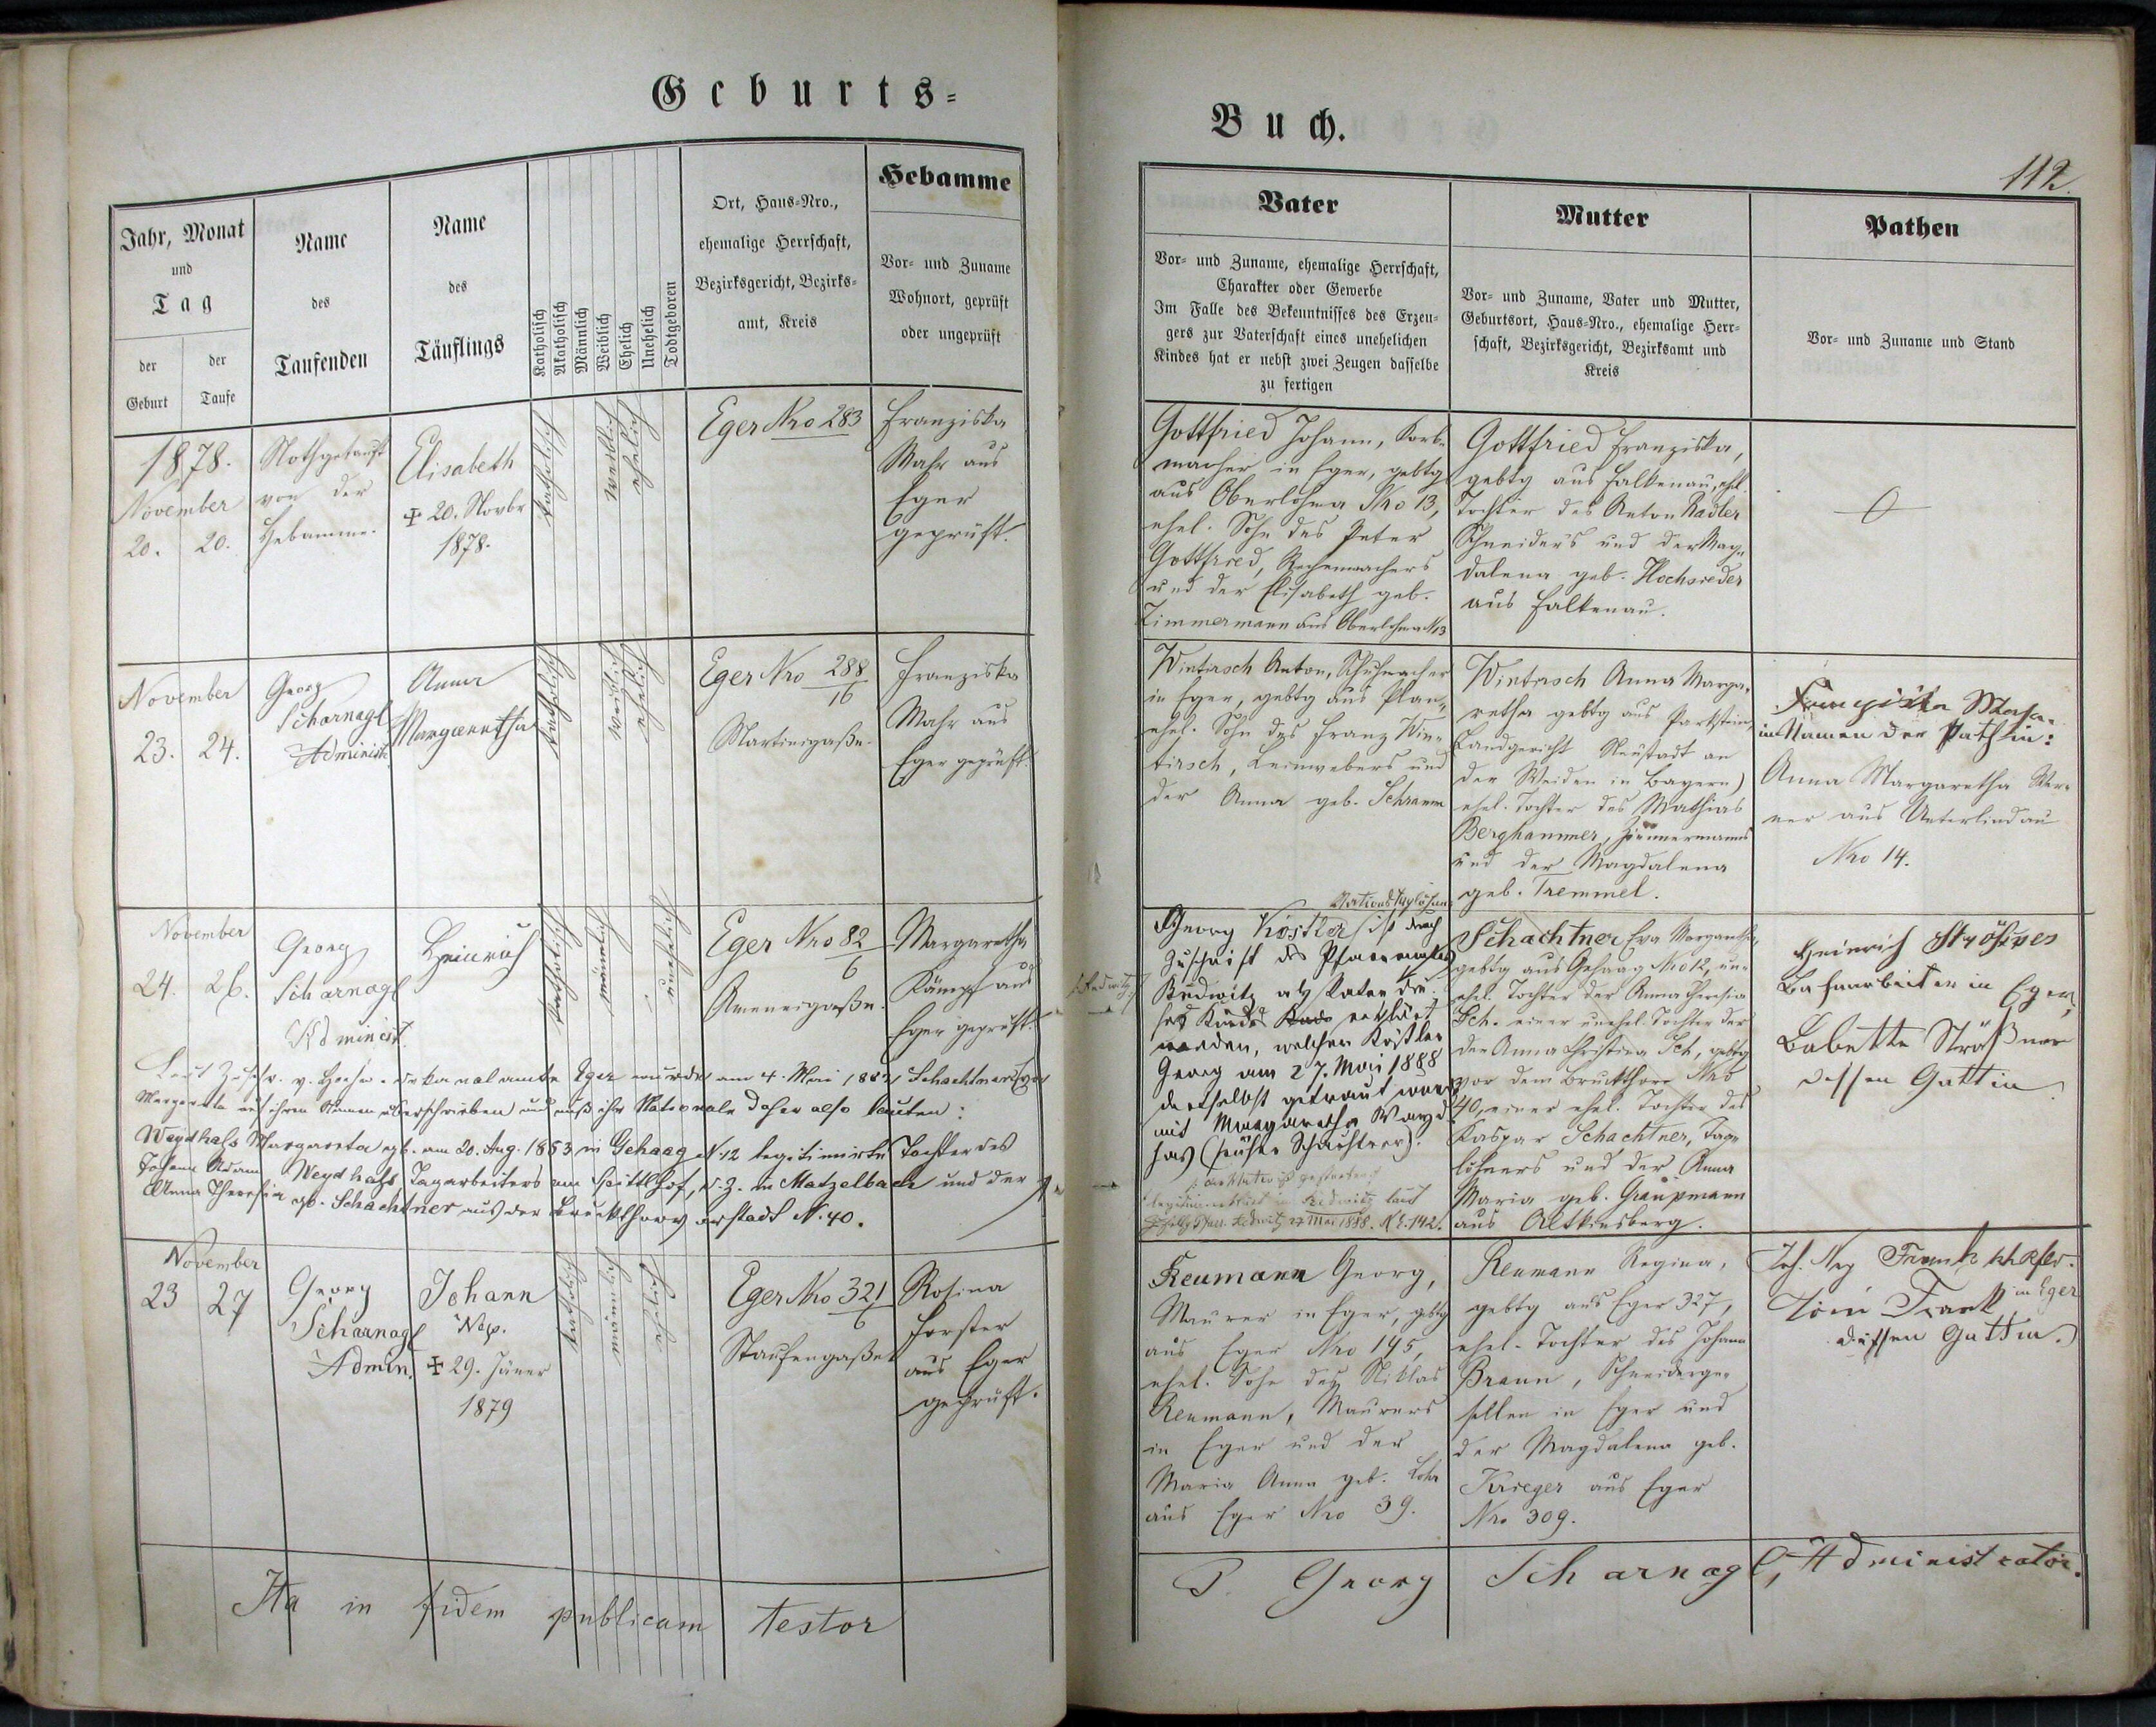 Geburts=
Jahr, Monat
und
Tag
der
Geburt
der
Taufe
Name
des
Taufenden
Name
des
Täuflings
Katholisch
Akatholisch
Männlich
Weiblich
Ehelich
Unehelich
Todtgeboren
Ort, Haus=Nro.,
ehemalige Herrschaft,
Bezirksgericht, Bezirks=
amt, Kreis
Hebamme
Vor= und Zuname
Wohnort, geprüft
oder ungeprüft
1878.
November
20. 20.
Nothgetauft
von der
Hebamme.
Elisabeth
✠ 20. Novbr
1878.
katholisch
weiblich
ehelich
Eger Nro 283
Franziska
Mahr aus
Eger
geprüft.
November
23. 24.
Georg
Scharnagl
Administ.
Anna
Margaretha
katholisch
weiblich
ehelich
Eger Nro 288
16
Martinigaße.
Franziska
Mahr aus
Eger geprüft.
November
24. 26.
Georg
Scharnagl
Administ.
Heinrich
katholisch
männlich
unehelich
Eger Nro 82
6
Margaretha
Kämpf aus
Eger geprüft.
Laut Zuschr. v. Dekanalamte Eger wurde am 4. Mai 1882 Schachtner Eva
Margareta auf ihren Namen überschrieben und muß ihr Nationale daher also lauten:
Weydhals Margareta geb. am 20. Aug. 1853 in Gehaag N. 12 legitimirte Tochter des
Johann Adam Weydhals Tagarbeiters am Spittlhof, d. Z. in Matzelbach und der
Anna Theresia geb. Schachtner aus der Bruckthorvorstadt N. 40.
November
23 27
Georg
Scharnagl
Admin.
Johann
Nep.
✠ 29. Jäner
1879
katholisch
männlich
ehelich
Eger Nro 321
6
Staufengaße
Rosina
Forster
aus Eger
geprüft.
Ita in fidem publicam testor
Buch.
112.
Vater
Vor= und Zuname, ehemalige Herrschaft,
Charakter oder Gewerbe
Im Falle des Bekenntnisses des Erzeu=
gers zur Vaterschaft eines unehelichen
Kindes hat er nebst zwei Zeugen dasselbe
zu fertigen
Mutter
Vor= und Zuname, Vater und Mutter,
Geburtsort, Haus=Nro., ehemalige Herr=
schaft, Bezirksgericht, Bezirksamt und
Kreis
Pathen
Vor= und Zuname und Stand
Gottfried Johann, Korb=
macher in Eger, gebtg
aus Oberlohma Nro 13,
ehel. Sohn des Peter
Gottfried, Rechenmachers
und der Elisabeth geb.
Zimmermann aus Oberlohma N 13
Gottfried Franziska,
gebtg aus Falkenau, ehl.
Tochter des Anton Radler
Schneiders und der Mag=
dalena geb. Hochsieder
aus Falkenau.
Wintirsch Anton, Schuhmacher
in Eger, gebtg aus Plan,
ehel. Sohn des Franz Win=
tirsch, Leinwebers und
der Anna geb. Schramm
Wintirsch Anna Marga=
retha gebtg aus Parkstein,
Landgericht Neustadt an
der Weiden in Bayern)
ehel. Tochter des Mathias
Berghammer, Zimmermanns
und der Magdalena
geb. Tremmel.
Franziska Mahr
im Namen der Pathin:
Anna Margaretha Wer=
ner aus Unterlindau
Nro 14.
Georg Köstler ist nach
Zuschrift des Pfarramtes
Redwitz als Vater die=
ses Kindes erklärt
worden, welcher Köstler
Georg am 27. Mai 1888
daselbst getraut wurde
mit Margaretha Wayd
has (früher Schachtner).
legitimatus in Redwitz laut
Redwitz 27 Mai 1888. N E. 142.
Schachtner Eva Margaretha,
gebtg aus Gehaag Nro 12, un=
ehel. Tochter der Anna Theresia
Sch. einer unehel. Tochter der
der Anna Christina Sch, gebtg
vor dem Bruckthore Nro
40, einer ehel. Tochter des
Kaspar Schachtner, Tag=
löhners und der Anna
Maria geb. Graupmann
aus Altkinsberg.
Heinrich
Bahnarbeiter in Eger,
Babette
dessen Gattin
Reumann Georg,
Maurer in Eger, gebtg
aus Eger Nro 195,
ehel. Sohn des Niklas
Reumann, Maurers
in Eger und der
Maria Anna geb. Lohr
aus Eger Nro 39.
Reumann Regina,
gebtg aus Eger 327,
ehel. Tochter des Johann
Braun, Schneiderge=
sellen in Eger und
der Magdalena geb.
Krieger aus Eger
Nro 309.
Joh. Nep Frank
in Eger
Toni Frank
dessen Gattin.
P. Georg Scharnagl, Administrator.